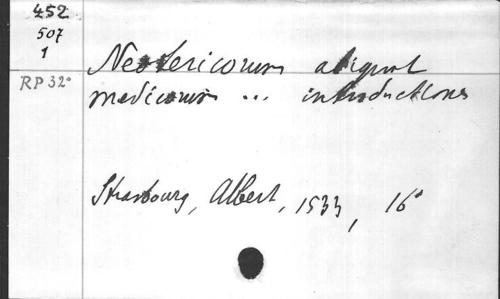 452
507
1
RP 32°
Neotericorum aliquot
medicorum ... introductiones
Strasbourg, Albert, 1533, 16°